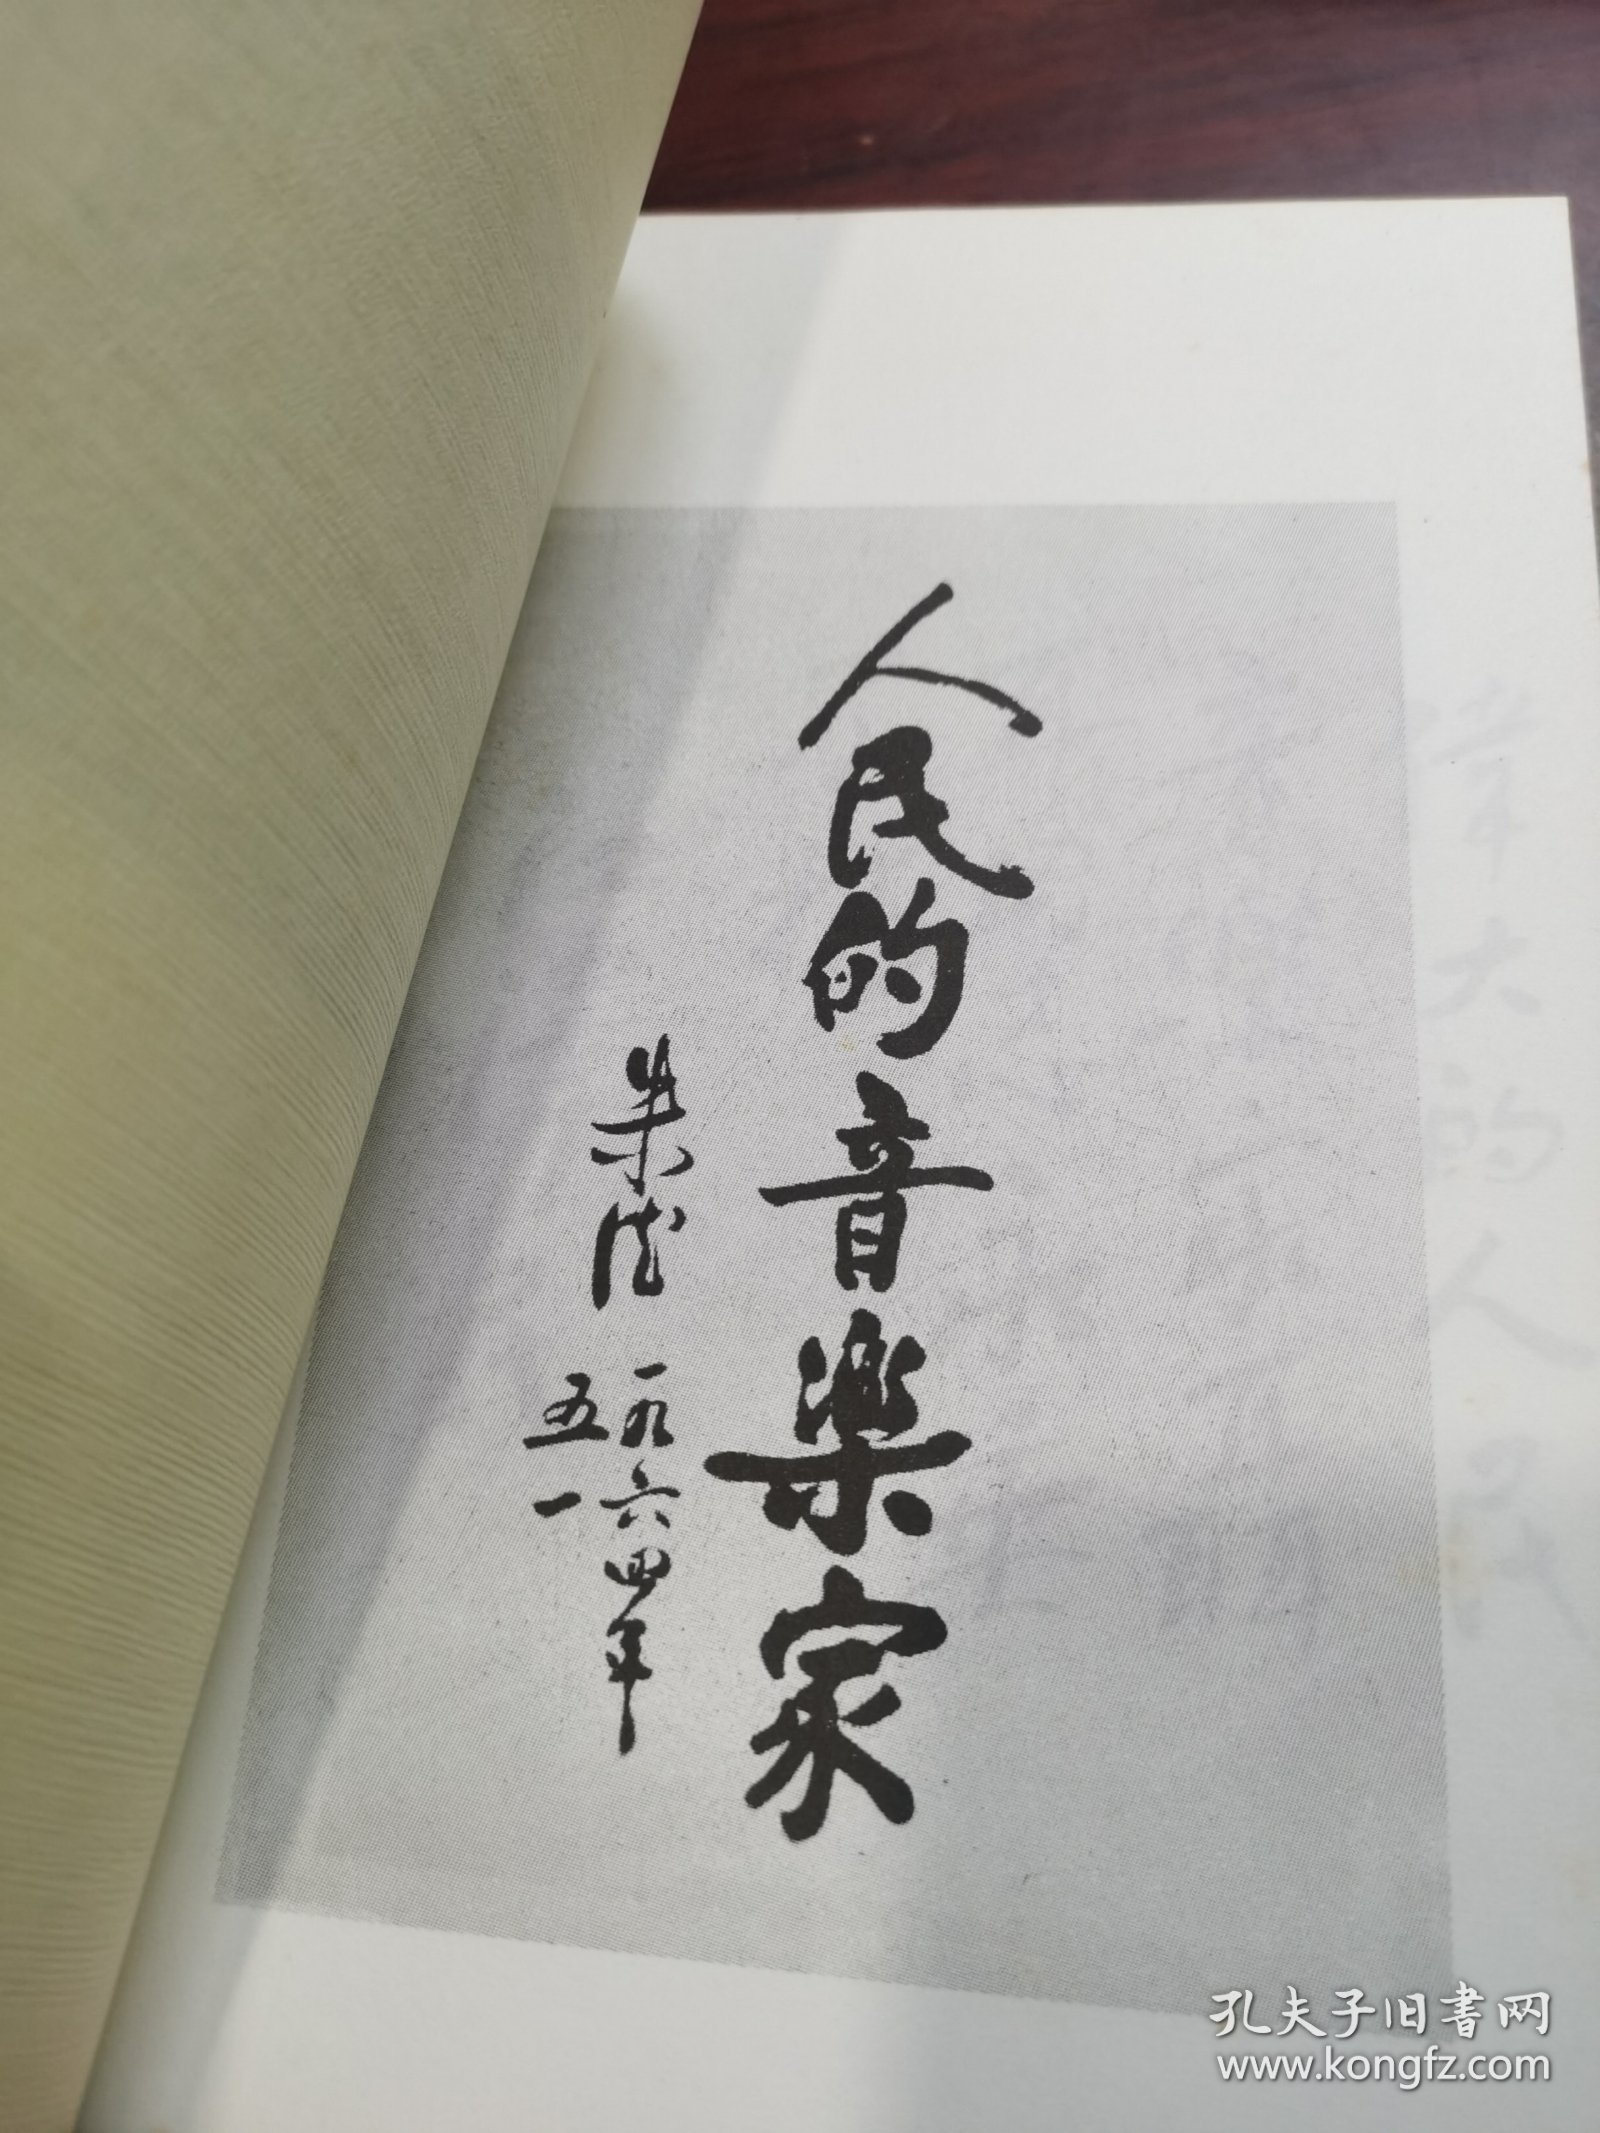 人民的音樂家
朱德
一九六四年
五一
偉大的人民
孔夫子旧書网
www.kongfz.com